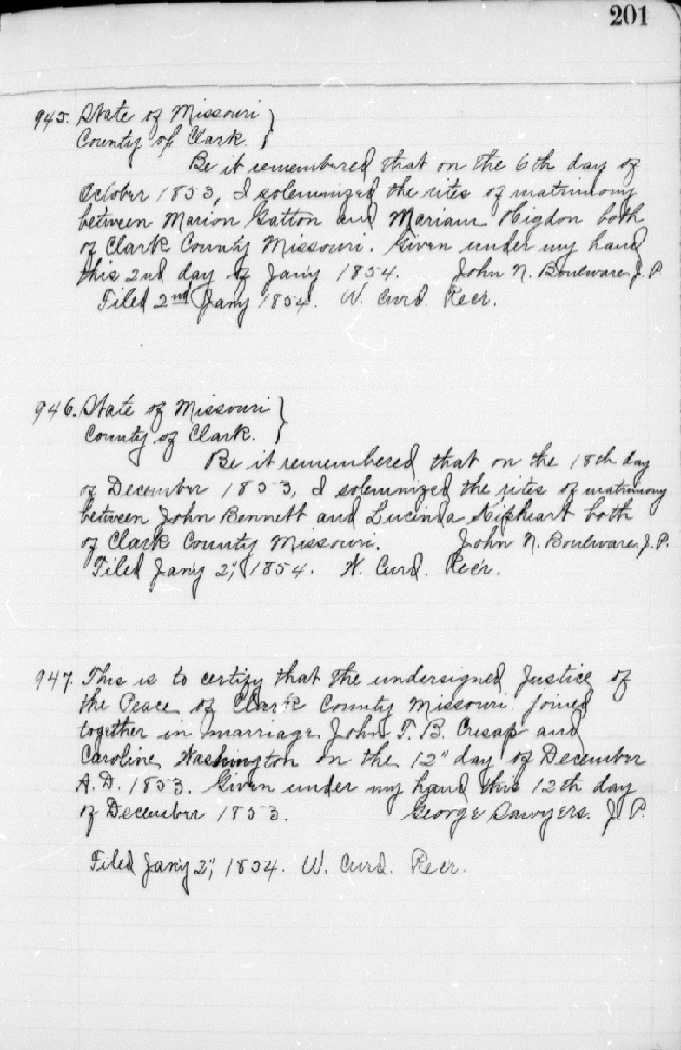 201
945. State of Missouri }
County of Clark. }
Be it remembered, that on the 6th day of
October 1853, I solemnized the rites of matrimony
between Marion Gatton and Meriam Higdon both
of Clark County Missouri. Given under my hand
this 2nd day of Jany 1854. John N. Bouleware J. P.
Filed 2nd Jany 1854. W. Curd Recr.
946. State of Missouri }
County of Clark. }
Be it remembered that on the 18th day
of December 1853, I solemnized the rites of matrimony
between John Bennett and Lucinda both
of Clark County Missouri. John N. Bouleware, J. P.
Filed Jan'y 2", 1854. W. Curd. Recr.
947. This is to certify that the undersigned Justice of
the Peace of Clark County Missouri joined
together in marriage John T. B. Cresap and
Caroline Washington on the 12" day of December
A. D. 1853. Given under my hand this 12th day
of December 1853. George Sawyers. J. P.
Filed Jan'y 2", 1854. W. Curd. Recr.